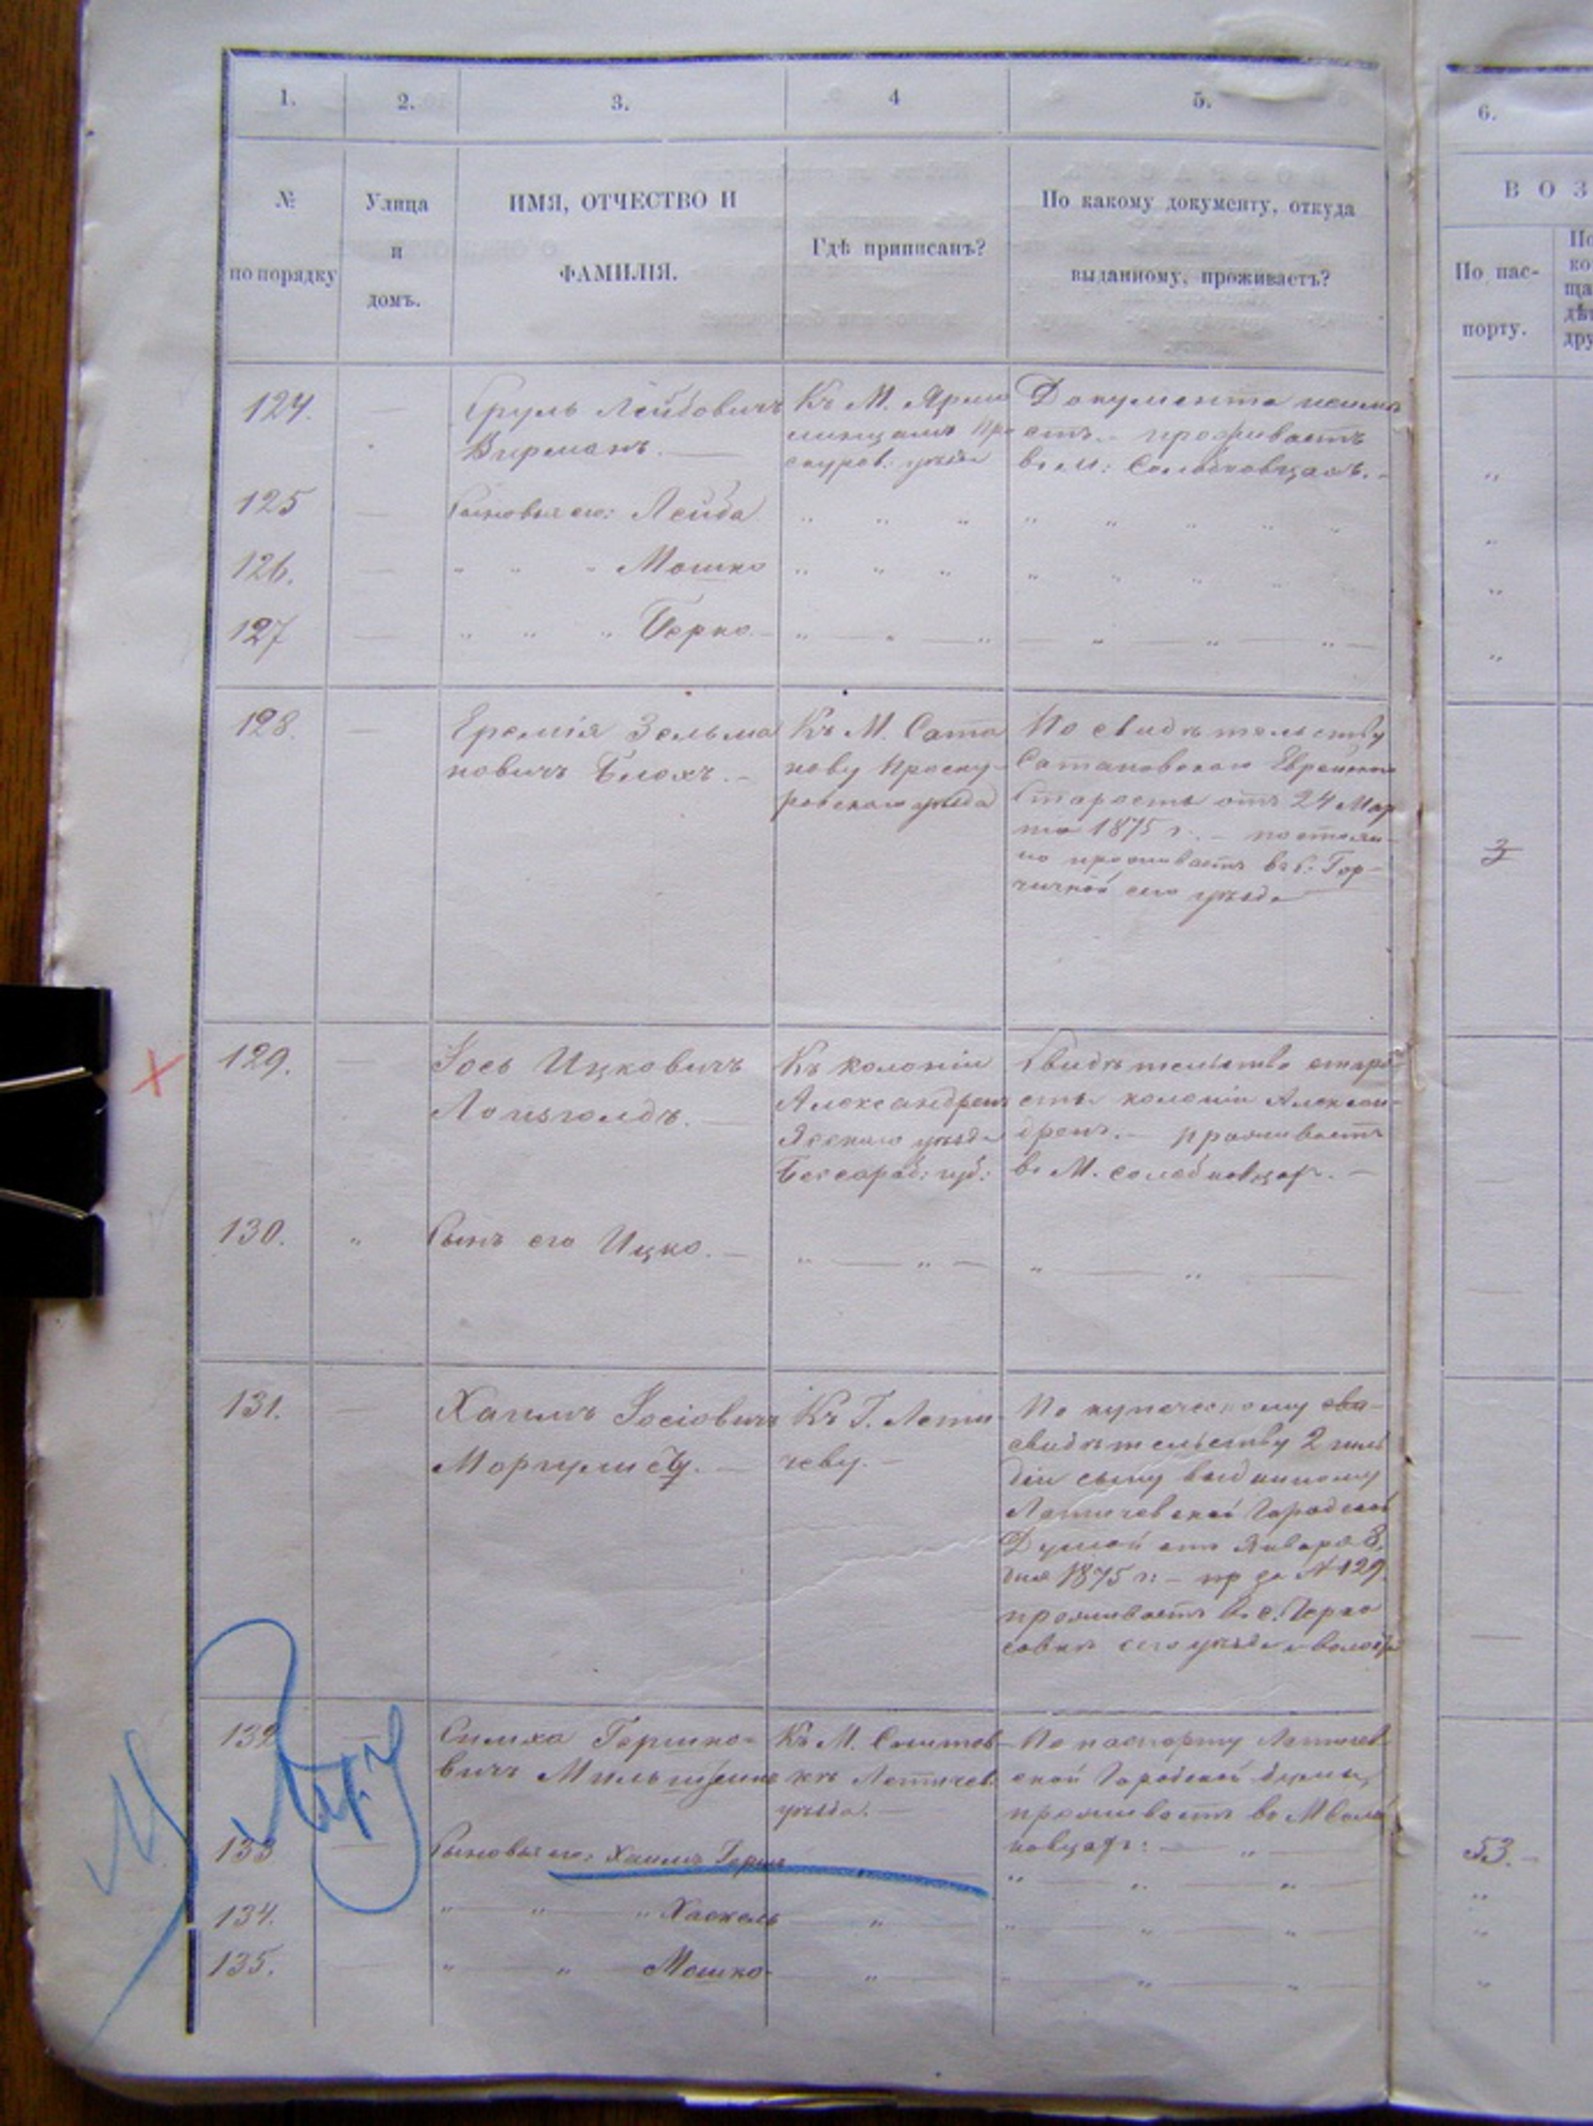 1. 2. 3. 4 5. 6.
№ по порядку
Улица и домъ.
ИМЯ, ОТЧЕСТВО И ФАМИЛІЯ.
Гдѣ приписанъ?
По какому документу, откуда выданному, проживаетъ?
ВОЗ
По пас-
порту.
124. Сруль Лейбовичъ
Вирманъ.
Къ М. Ярмо
линцамъ Про
скуров. уѣзда
Документа неимѣ
етъ. - проживаетъ
въ м: Солобковцахъ.
125 Сыновья его: Лейба
126. " " " Мошко
127 " " " Берко
128. Еремія Зельма
новичъ Блохъ.
Къ М. Сата
нову Проску-
ровскаго уѣзда
По свидѣтельству
Сатановскаго Еврейскаго
Старосты отъ 24 Мар
та 1875 г. - постоян-
но проживаетъ въ
сего уѣзда
3
129. Іось Ицковичъ
Къ колоніи
Александрен
Ясскаго уѣзда
Бессараб: губ:
Свидѣтельство старо
сты колоніи Алексан-
дрен. - проживаетъ
въ М. Солобковцахъ.
130. " Сынъ его Ицко.
131. Хаимъ Іосіовичъ
Моргулисъ.
Къ Г. Лети-
чеву.
По купеческому сви-
свидѣтельству 2 гиль
діи сыну выданному
Летичевской Городской
Думой отъ Января 8
дня 1875 г: - за № 129.
проживаетъ в. с.
сего уѣзда и волости
132 Симха Гершко-
вичъ
Къ М.
Летичев.
уѣзда.
По паспорту Летичев
ской Городской Думы,
проживаетъ въ М Соло
ковцахъ:
133 Сыновья его: Хаимъ Герш
53.
134. " " " Хаскель
135. " " Мошко